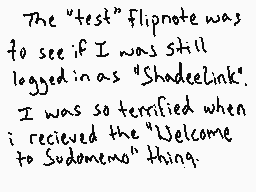 The "test" flipnote was
to see if I was still
logged in as "ShadeeLink".
I was so terrified when
i recieved the "Welcome
to Sudomemo" thing.